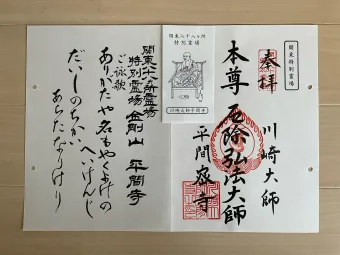 関東特別霊場
奉拝
川崎大師
本尊 厄除弘法大師
平間密寺
関東八十八ヶ所
特別霊場
川崎大師平間寺
関東八十八所霊場
特別霊場 金剛山 平間寺
ご詠歌
ありがたや名もやくよけの
へいけんじ
だいしのちかい
あらたなりけり